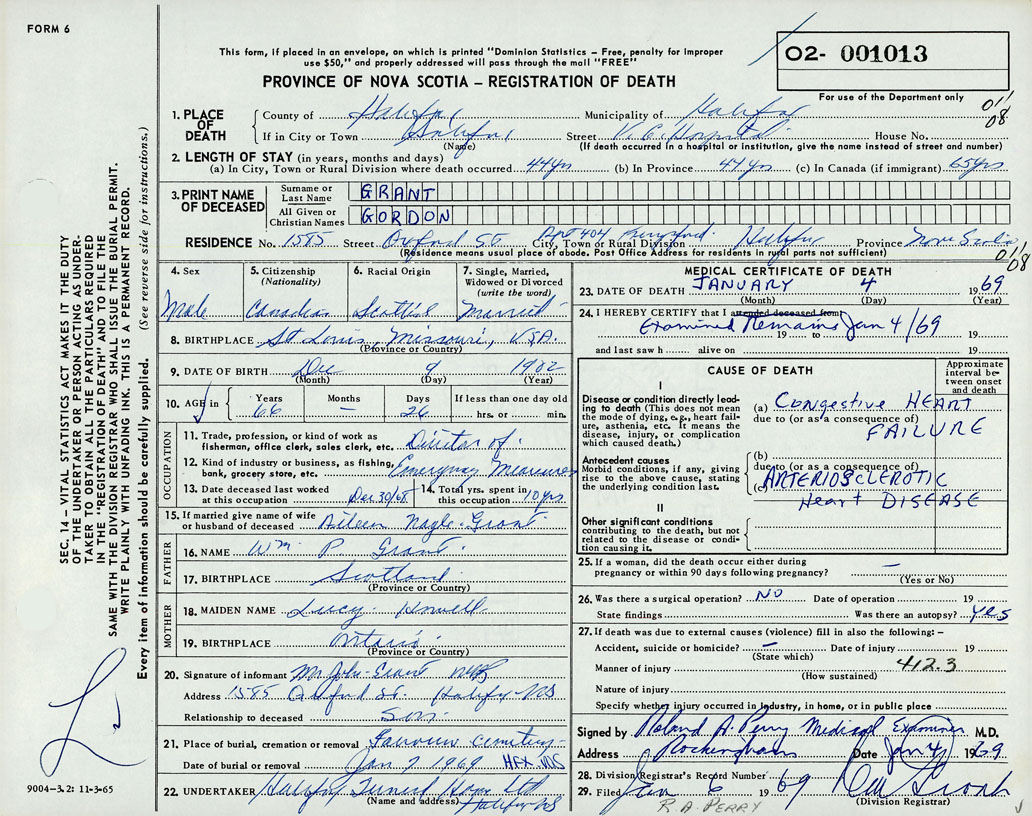 FORM 6
This form, if placed in an envelope, on which is printed "Dominion Statistics – Free, penalty for improper
use $50," and properly addressed will pass through the mail "FREE"
O2- 001013
For use of the Department only
PROVINCE OF NOVA SCOTIA – REGISTRATION OF DEATH
011
08
1. PLACE OF DEATH
County of Halifax Municipality of Halifax
If in City or Town Halifax Street V.G. Hospital House No.
(Name) (If death occurred in a hospital or institution, give the name instead of street and number)
2. LENGTH OF STAY (in years, months and days)
(a) In City, Town or Rural Division where death occurred 44 yrs (b) In Province 44 yrs (c) In Canada (if immigrant) 65 yrs
3. PRINT NAME OF DECEASED
Surname or Last Name GRANT
All Given or Christian Names GORDON
RESIDENCE No. 1585 Street Oxford St. Apt 404 City, Town or Rural Division Halifax Province Nova Scotia
(Residence means usual place of abode. Post Office Address for residents in rural parts not sufficient)
011
08
4. Sex
Male
5. Citizenship
(Nationality)
Canadian
6. Racial Origin
Scottish
7. Single, Married, Widowed or Divorced
(write the word)
Married
8. BIRTHPLACE St Louis, Missouri, USA
(Province or Country)
9. DATE OF BIRTH Dec 9 1902
(Month) (Day) (Year)
10. AGE in Years 66 Months – Days 26 If less than one day old hrs. or min.
OCCUPATION
11. Trade, profession, or kind of work as fisherman, office clerk, sales clerk, etc. Director of
12. Kind of industry or business, as fishing, bank, grocery store, etc. Emergency Measures
13. Date deceased last worked at this occupation Dec 30/68 14. Total yrs. spent in this occupation 10 yrs.
15. If married give name of wife or husband of deceased Aileen Nagle-Grant
FATHER
16. NAME Wm P. Grant
17. BIRTHPLACE Scotland
(Province or Country)
MOTHER
18. MAIDEN NAME Lucy Howell
19. BIRTHPLACE Ontario
(Province or Country)
20. Signature of informant Mr John Grant
Address 1585 Oxford St. Halifax NS
Relationship to deceased Son
21. Place of burial, cremation or removal Fairview cemetery
Date of burial or removal Jan 7 1969 HFX NS
22. UNDERTAKER Halifax Funeral Home Ltd
(Name and address) Halifax NS
MEDICAL CERTIFICATE OF DEATH
23. DATE OF DEATH JANUARY 4 1969
(Month) (Day) (Year)
24. I HEREBY CERTIFY that I attended deceased from
Examined Remains Jan 4/69
19 to 19
and last saw h alive on 19
CAUSE OF DEATH
Approximate interval between onset and death
I
Disease or condition directly leading to death (This does not mean the mode of dying, e.g., heart failure, asthenia, etc. It means the disease, injury, or complication which caused death.)
(a) Congestive HEART
due to (or as a consequence of)
FAILURE
Antecedent causes
Morbid conditions, if any, giving rise to the above cause, stating the underlying condition last.
(b)
due to (or as a consequence of)
(c) ARTERIOSCLEROTIC
Heart DISEASE
II
Other significant conditions
contributing to the death, but not related to the disease or condition causing it.
25. If a woman, did the death occur either during pregnancy or within 90 days following pregnancy? –
(Yes or No)
26. Was there a surgical operation? NO Date of operation 19
State findings Was there an autopsy? Yes
27. If death was due to external causes (violence) fill in also the following: –
Accident, suicide or homicide? – Date of injury 19
(State which)
Manner of injury 412.3
(How sustained)
Nature of injury
Specify whether injury occurred in industry, in home, or in public place
Signed by Roland A. Perry Medical Examiner M.D.
Address Rockingham Date Jan 4, 1969
28. Division Registrar's Record Number
29. Filed Jan 6 1969
(Division Registrar)
R.A. PERRY
SEC. 14 – VITAL STATISTICS ACT MAKES IT THE DUTY
OF THE UNDERTAKER OR PERSON ACTING AS UNDER-
TAKER TO OBTAIN ALL THE PARTICULARS REQUIRED
IN THE "REGISTRATION OF DEATH" AND TO FILE THE
SAME WITH THE DIVISION REGISTRAR WHO SHALL ISSUE THE BURIAL PERMIT.
WRITE PLAINLY WITH UNFADING INK. THIS IS A PERMANENT RECORD.
Every item of information should be carefully supplied. (See reverse side for instructions.)
9004-3.2: 11-3-65